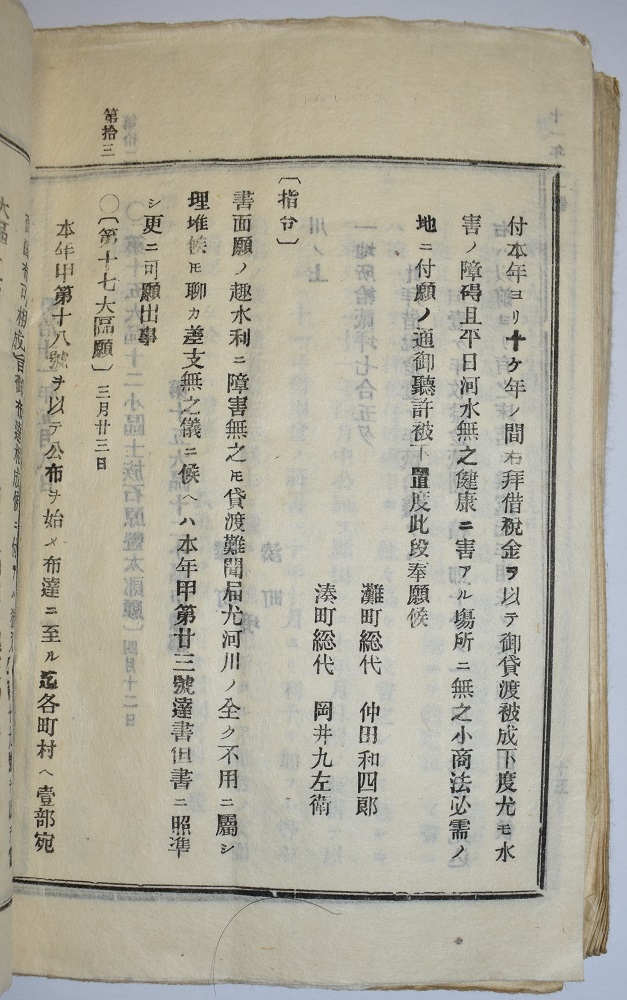 付本年ヨリ十ケ年ノ間右拜借稅金ヲ以テ御貸渡被成下度尤モ水
害ノ障碍且平日河水無之健康ニ害アル塲所ニ無之小商法必需ノ
地ニ付願ノ通御聽許被下置度此段奉願候
灘町総代 仲田和四郎
湊町総代 岡井九左衛
〔指令〕
書面願ノ趣水利ニ障害無之モ貸渡難聞届尤河川ノ全ク不用ニ屬シ
理堆候モ聊カ差支無之儀ニ候ヘハ本年甲第廿三號達書但書ニ照準
シ更ニ可願出事
〇〔第十七大區願〕三月廿三日
本年甲第十八號ヲ以テ公布ヲ始メ布達ニ至ル迄各町村ヘ壹部宛
第拾三